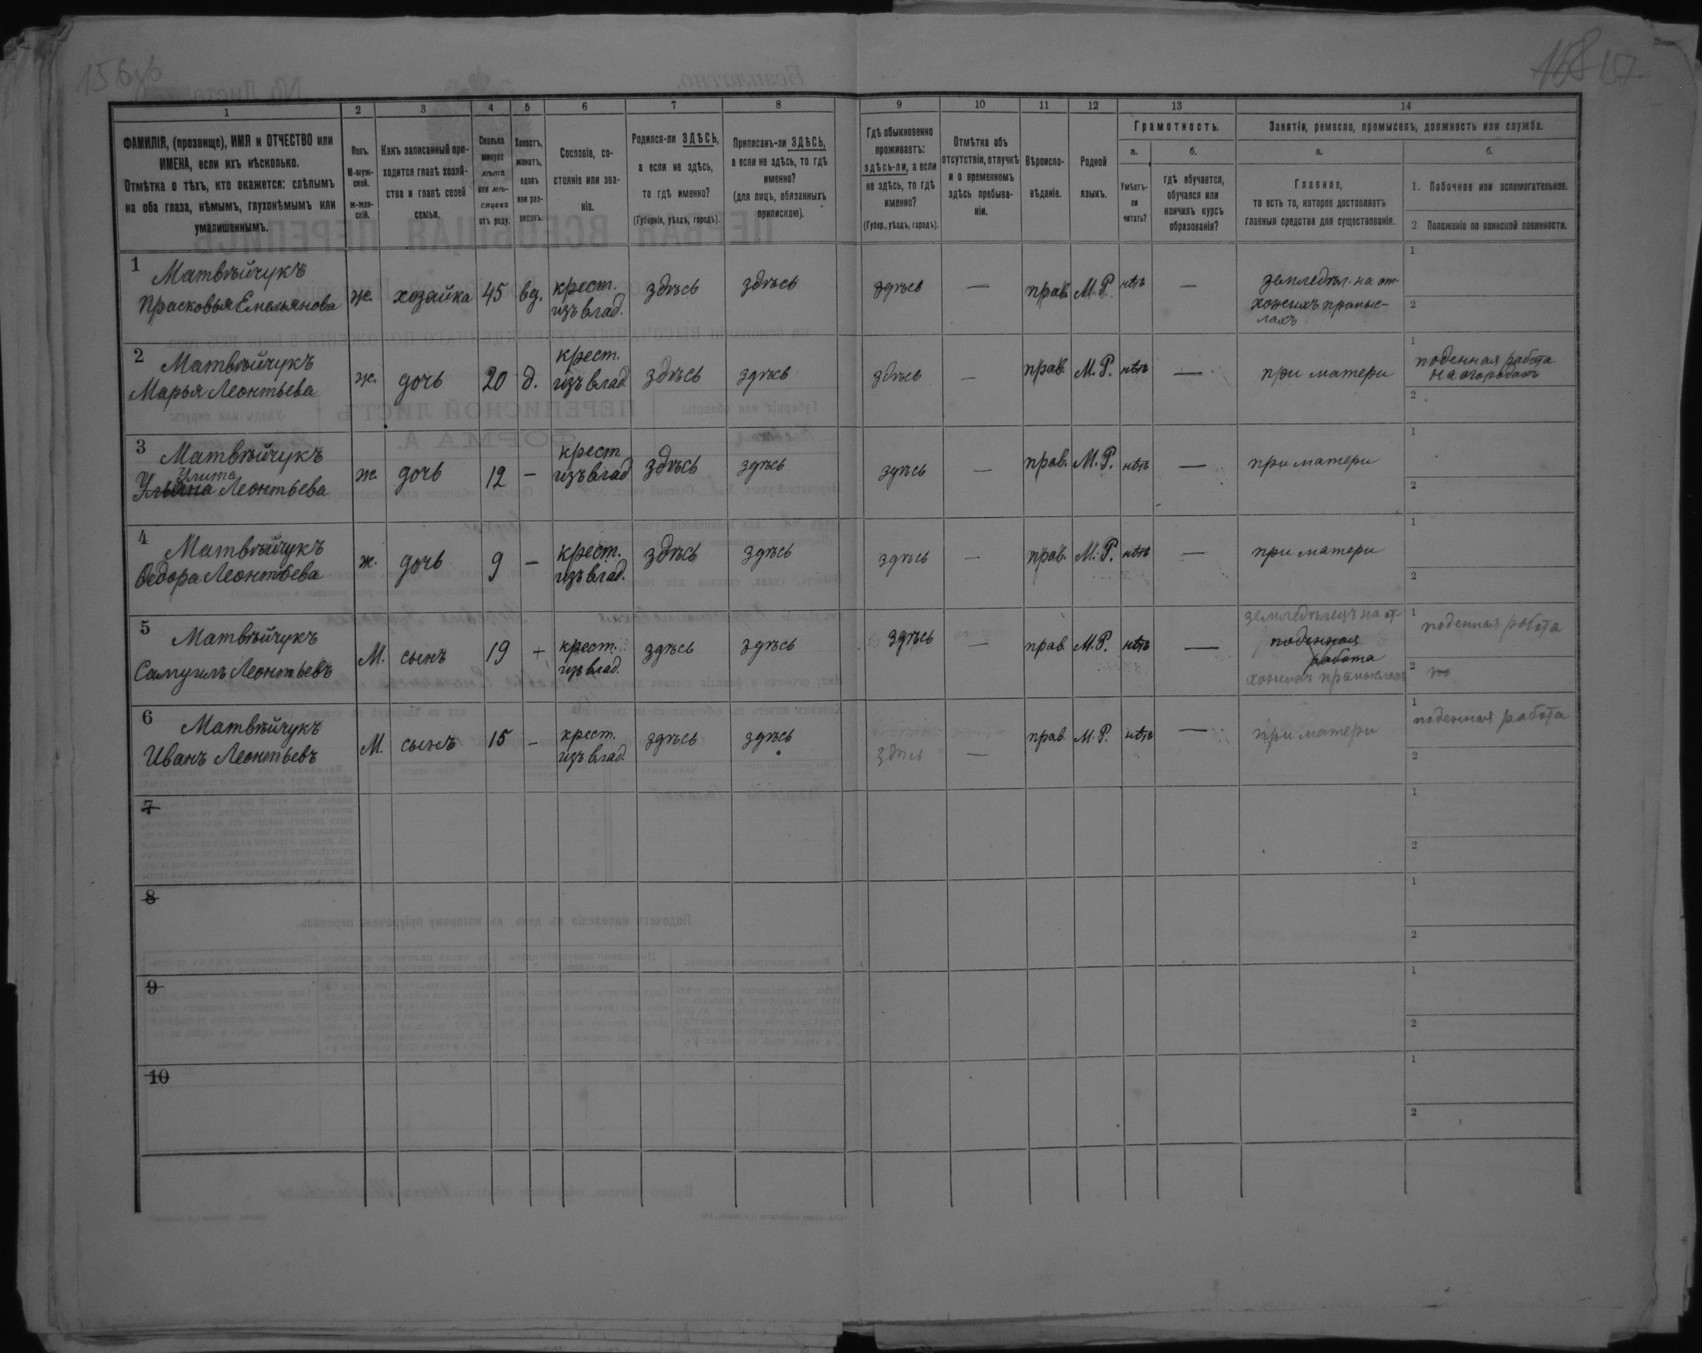 1
2
3
4
5
6
7
8
9
10
11
12
13
14
ФАМИЛІЯ, (прозвище), ИМЯ и ОТЧЕСТВО или
ИМЕНА, если ихъ нѣсколько.
Отмѣтка о тѣхъ, кто окажется: слѣпымъ
на оба глаза, нѣмымъ, глухонѣмымъ или
умалишеннымъ.
Полъ.
М-муж-
ской.
ж-жен-
скій.
Какъ записанный при-
ходится главѣ хозяй-
ства и главѣ своей
семьи.
Сколько
минуло
лѣтъ
или мѣ-
сяцевъ
отъ роду.
Холостъ,
женатъ,
вдовъ
или раз-
веденъ.
Сословіе, со-
стояніе или зва-
ніе.
Родился-ли ЗДѢСЬ,
а если не здѣсь,
то гдѣ именно?
(Губернія, уѣздъ, городъ).
Приписанъ-ли ЗДѢСЬ,
а если не здѣсь, то гдѣ
именно?
(для лицъ, обязанныхъ
припискою).
Гдѣ обыкновенно
проживаетъ:
здѣсь-ли, а если
не здѣсь, то гдѣ
именно?
(Губер., уѣздъ, городъ).
Отмѣтка объ
отсутствіи, отлучкѣ
и о временномъ
здѣсь пребыва-
ніи.
Вѣроиспо-
вѣданіе.
Родной
языкъ.
Грамотность.
а.
Умѣетъ-
ли
читать?
б.
гдѣ обучается,
обучался или
кончилъ курсъ
образованія?
Занятіе, ремесло, промыселъ, должность или служба.
а.
Главное,
то есть то, которое доставляетъ
главныя средства для существованія.
б.
1. Побочное или вспомогательное.
2 Положеніе по воинской повинности.
1 Матвѣйчукъ
Прасковья Емельянова ж. хозяйка 45 вд. крест. изъ влад. здѣсь здѣсь здѣсь — прав. М.Р. нѣтъ — земледѣл. на от-
хожихъ промыс-
лахъ
1
2
2 Матвѣйчукъ
Марья Леонтьева ж. дочь 20 д. крест. изъ влад. здѣсь здѣсь здѣсь — прав. М.Р. нѣтъ — при матери
1 поденная работа
на огородахъ
2
3 Матвѣйчукъ
Улита
Ульяна Леонтьева ж. дочь 12 — крест. изъ влад. здѣсь здѣсь здѣсь — прав. М.Р. нѣтъ — при матери
1
2
4 Матвѣйчукъ
Ѳедора Леонтьева ж. дочь 9 — крест. изъ влад. здѣсь здѣсь здѣсь — прав. М.Р. нѣтъ — при матери
1
2
5 Матвѣйчукъ
Самуилъ Леонтьевъ М. сынъ 19 + крест. изъ влад. здѣсь здѣсь здѣсь — прав. М.Р. нѣтъ — земледѣлецъ на от-
поденная
работа
хожихъ промыслахъ
1 поденная работа
2
6 Матвѣйчукъ
Иванъ Леонтьевъ М. сынъ 15 — крест. изъ влад. здѣсь здѣсь здѣсь — прав. М.Р. нѣтъ — при матери
1 поденная работа
2
7
1
2
8
1
2
9
1
2
10
1
2